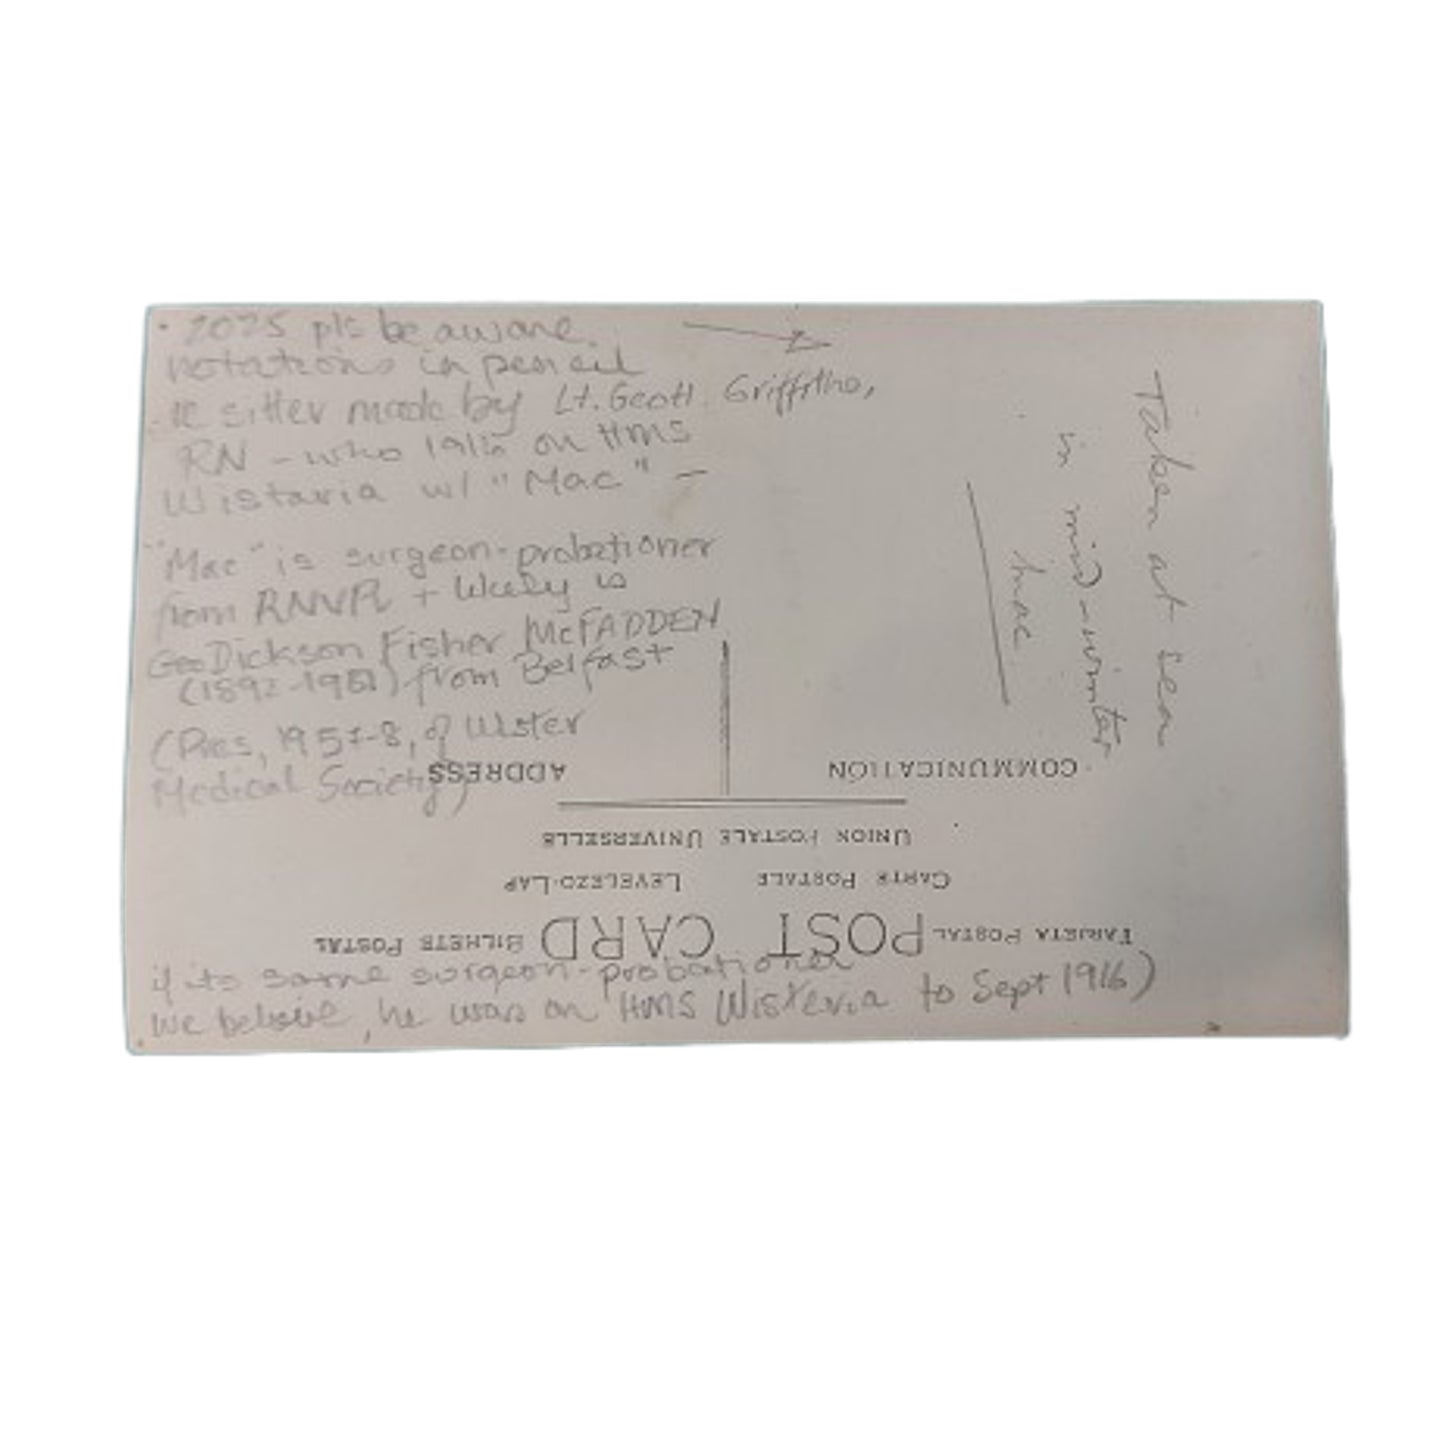 • 2025 pls be aware
notations in pencil
re sitter made by Lt. Geoff Griffiths,
RN - who 1916 on HMS
Wistaria w/ "Mac" -
"Mac" is surgeon-probationer
from RNVR + likely is
Dickson Fisher McFADDEN
(1892-1981) from Belfast
(Pres, 1957-8, of Ulster
Medical Society)
if its same surgeon-probationer
we believe, he was on HMS Wisteria to Sept 1916)
Taken at sea
in mid-winter
Mac
TARJETA POSTAL POST CARD BILHETE POSTAL
CARTE POSTALE LEVELEZO-LAP
UNION POSTALE UNIVERSELLE
COMMUNICATION ADDRESS